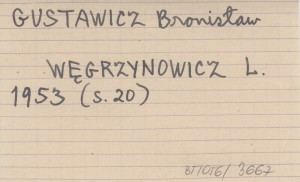 GUSTAWICZ Bronisław
WĘGRZYNOWICZ L.
1953 (s.20)
BT/OT6/ 3667